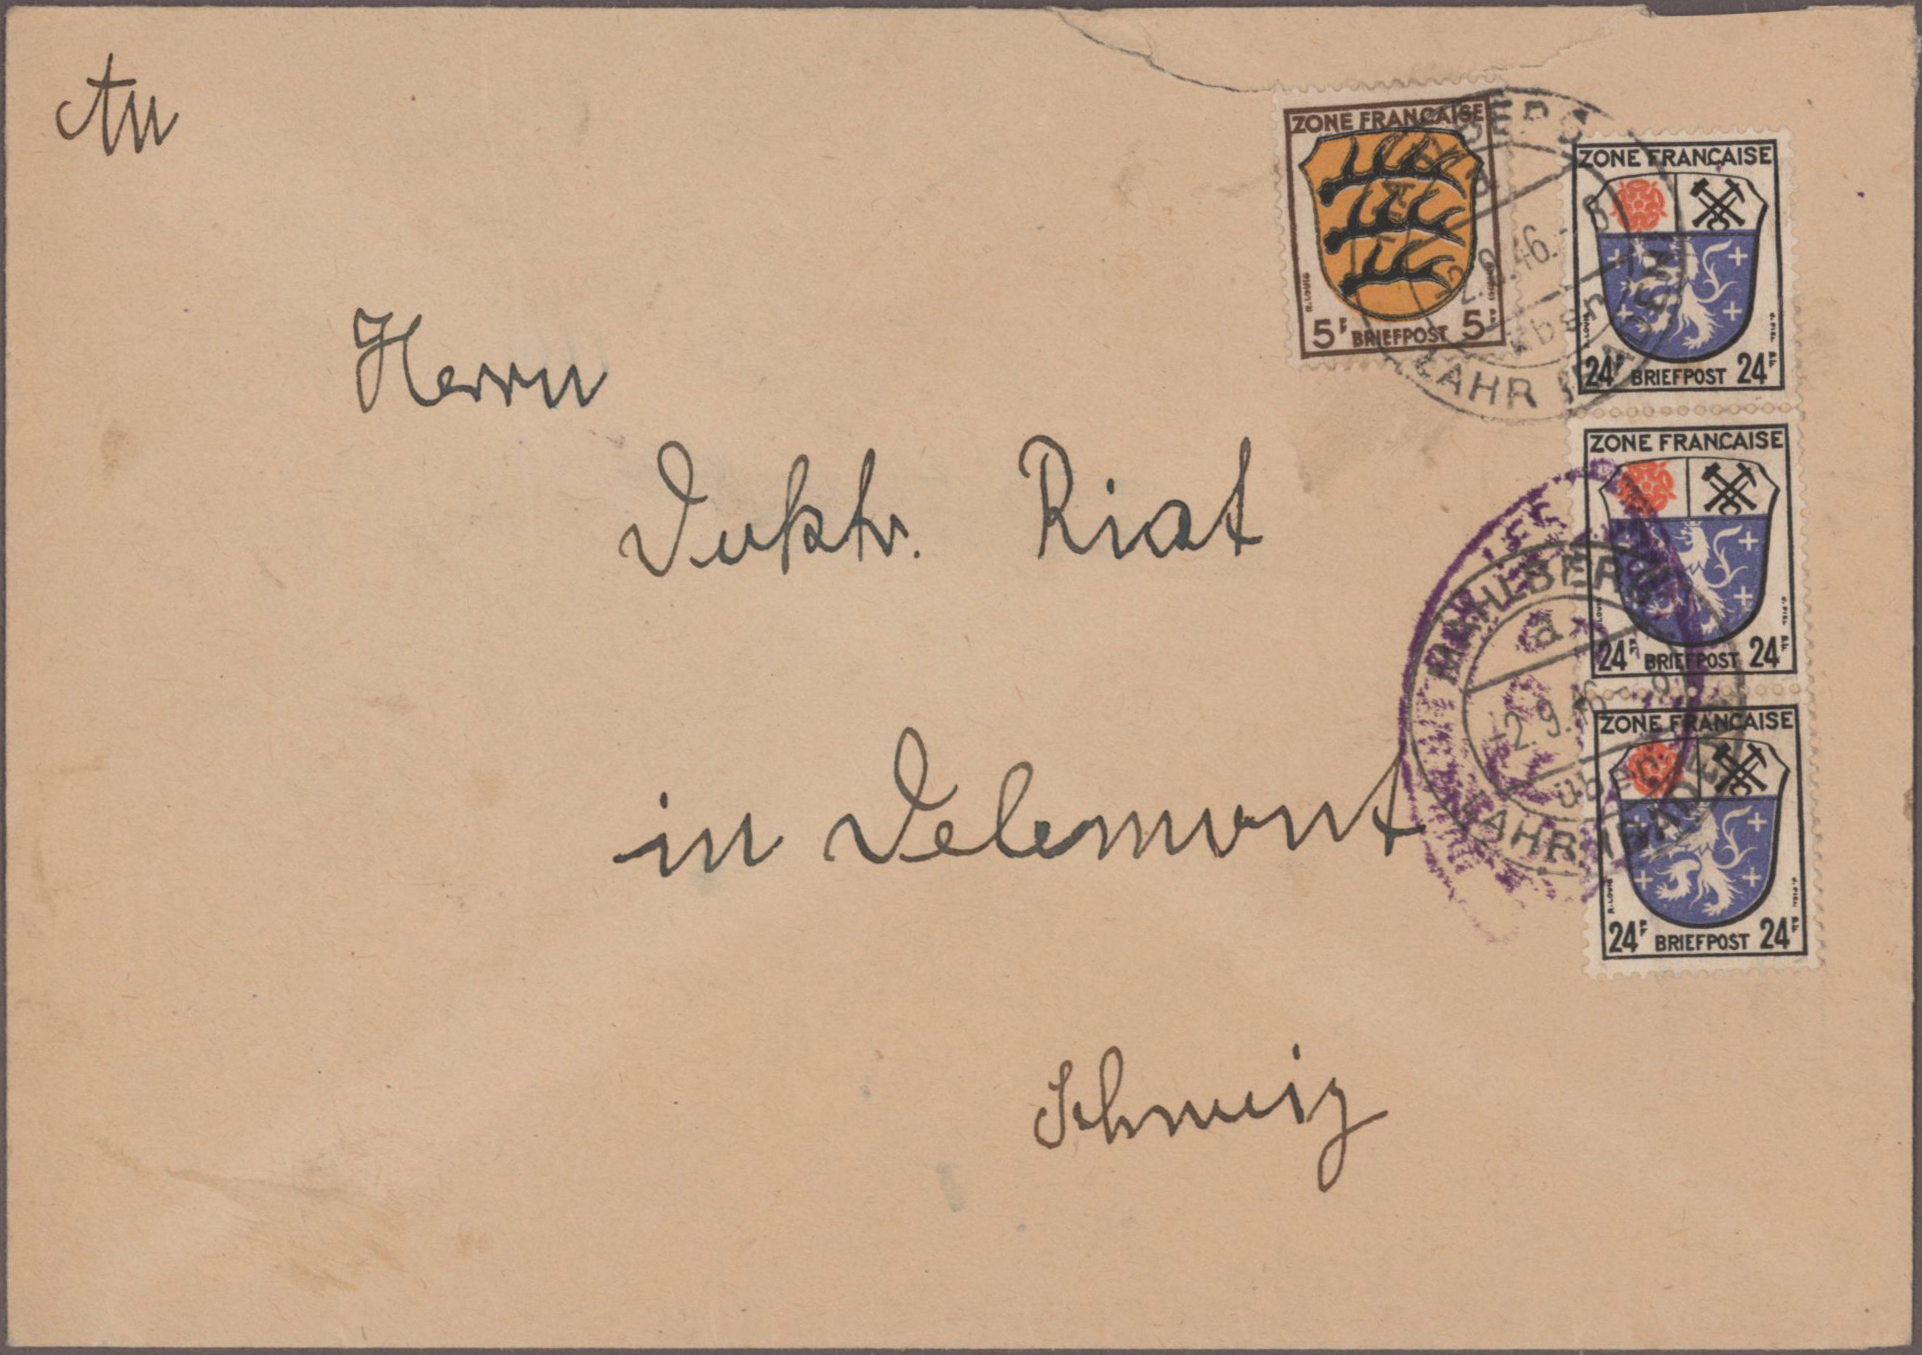 An
Herrn
Doktor. Riat
in Delemont
Schweiz
ZONE FRANÇAISE
5F BRIEFPOST 5F
ZONE FRANÇAISE
24F BRIEFPOST 24F
ZONE FRANÇAISE
24F BRIEFPOST 24F
ZONE FRANÇAISE
24F BRIEFPOST 24F
BERG
a
2.9.46.-8
über
LAHR (BADEN)
MAHLBERG
a
-2.9.46.-8
über
LAHR (BADEN)